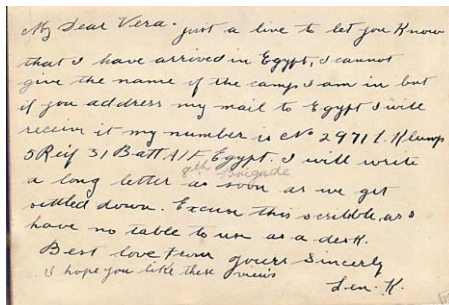 My Dear Vera. just a line to let you know
that I have arrived in Egypt, I cannot
give the name of the camp I am in but
if you address my mail to Egypt I will
receive it my number is No 2971 L. Klump
5 Reif 31 Batt AIF Egypt. I will write
8th Brigade
a long letter as soon as we get
settled down. Excuse this scribble, as I
have no table to use as a desk.
Best love from yours Sincerly
I hope you like these views
Len. K.